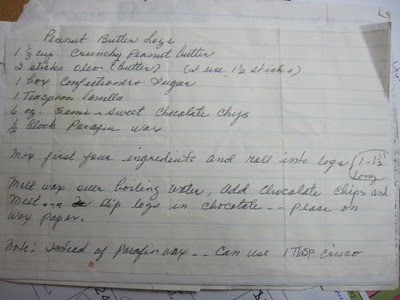 Peanut Butter Logs
1 1/2 cup Crunchy Peanut butter
2 sticks Oleo (butter) (I use 1 1/2 sticks)
1 box Confectioners Sugar
1 Teaspoon Vanilla
6 oz. Semi-Sweet Chocolate Chips
1/2 Block Parafin Wax
Mix first four ingredients and roll into logs (1-1 1/2" long
Melt wax over boiling water, Add Chocolate Chips and
Melt... dip logs in chocolate -- place on
Wax paper.
Note: Instead of Parafin wax -- Can use 1 Tbsp Crisco